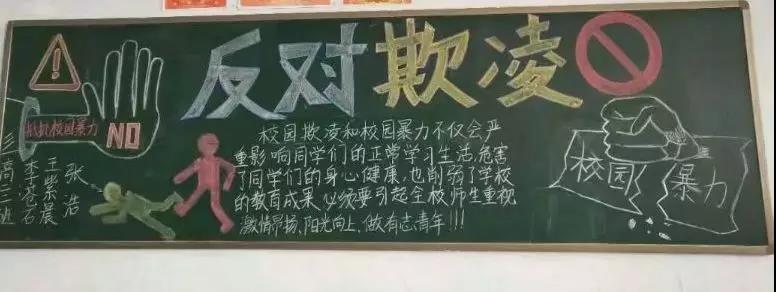 反对欺凌
抵抗校园暴力
NO
校园欺凌和校园暴力不仅会严
重影响同学们的正常学习生活,危害
了同学们的身心健康,也削弱了学校
的教育成果,必须要引起全校师生重视
激情昂扬、阳光向上、做有志青年!!!
校园
暴力
高三班
李苍石
王紫晨
张浩